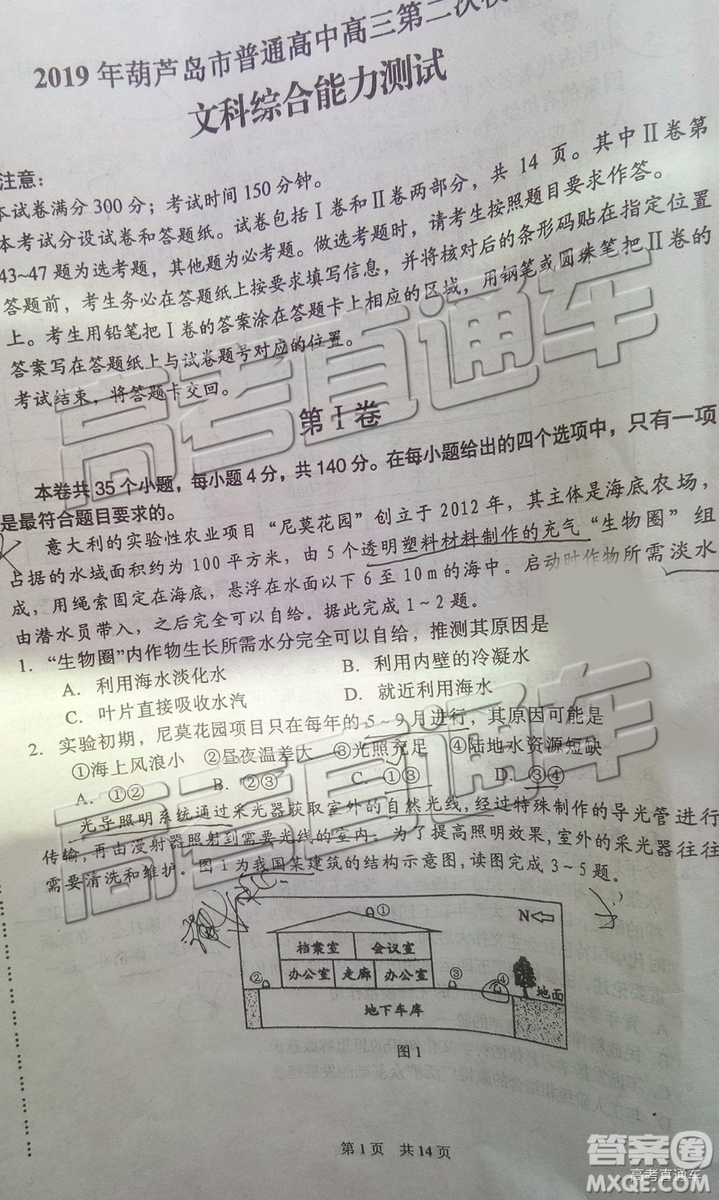 2019 年葫芦岛市普通高中高三第二次
文科综合能力测试
注意:
本试卷满分 300 分；考试时间 150 分钟。
本考试分设试卷和答题纸。试卷包括Ⅰ卷和Ⅱ卷两部分，共 14 页。其中Ⅱ卷第
43~47 题为选考题，其他题为必考题。做选考题时，请考生按照题目要求作答。
答题前，考生务必在答题纸上按要求填写信息，并将核对后的条形码贴在指定位置
上。考生用铅笔把Ⅰ卷的答案涂在答题卡上相应的区域，用钢笔或圆珠笔把Ⅱ卷的
答案写在答题纸上与试卷题号对应的位置。
考试结束，将答题卡交回。
第Ⅰ卷
本卷共 35 个小题，每小题 4 分，共 140 分。在每小题给出的四个选项中，只有一项
是最符合题目要求的。
意大利的实验性农业项目“尼莫花园”创立于 2012 年，其主体是海底农场，
占据的水域面积约为 100 平方米，由 5 个透明塑料材料制作的充气“生物圈”组
成，用绳索固定在海底，悬浮在水面以下 6 至 10m 的海中。启动时作物所需淡水
由潜水员带入，之后完全可以自给。据此完成 1~2 题。
1. “生物圈”内作物生长所需水分完全可以自给，推测其原因是
A. 利用海水淡化水 B. 利用内壁的冷凝水
C. 叶片直接吸收水汽 D. 就近利用海水
2. 实验初期，尼莫花园项目只在每年的 5~9 月进行，其原因可能是
①海上风浪小 ②昼夜温差大 ③光照充足 ④陆地水资源短缺
A. ①② B. ②③ C. ①③ D. ③④
光导照明系统通过采光器获取室外的自然光线，经过特殊制作的导光管进行
传输，再由漫射器照射到需要光线的室内。为了提高照明效果，室外的采光器往往
需要清洗和维护。图 1 为我国某建筑的结构示意图，读图完成 3~5 题。
① N
档案室 会议室
② 办公室 走廊 办公室 ③
地面
地下车库
图 1
第 1 页 共 14 页
高考直通车
高考直通车
答案圈
高考直通车
MXQE.COM